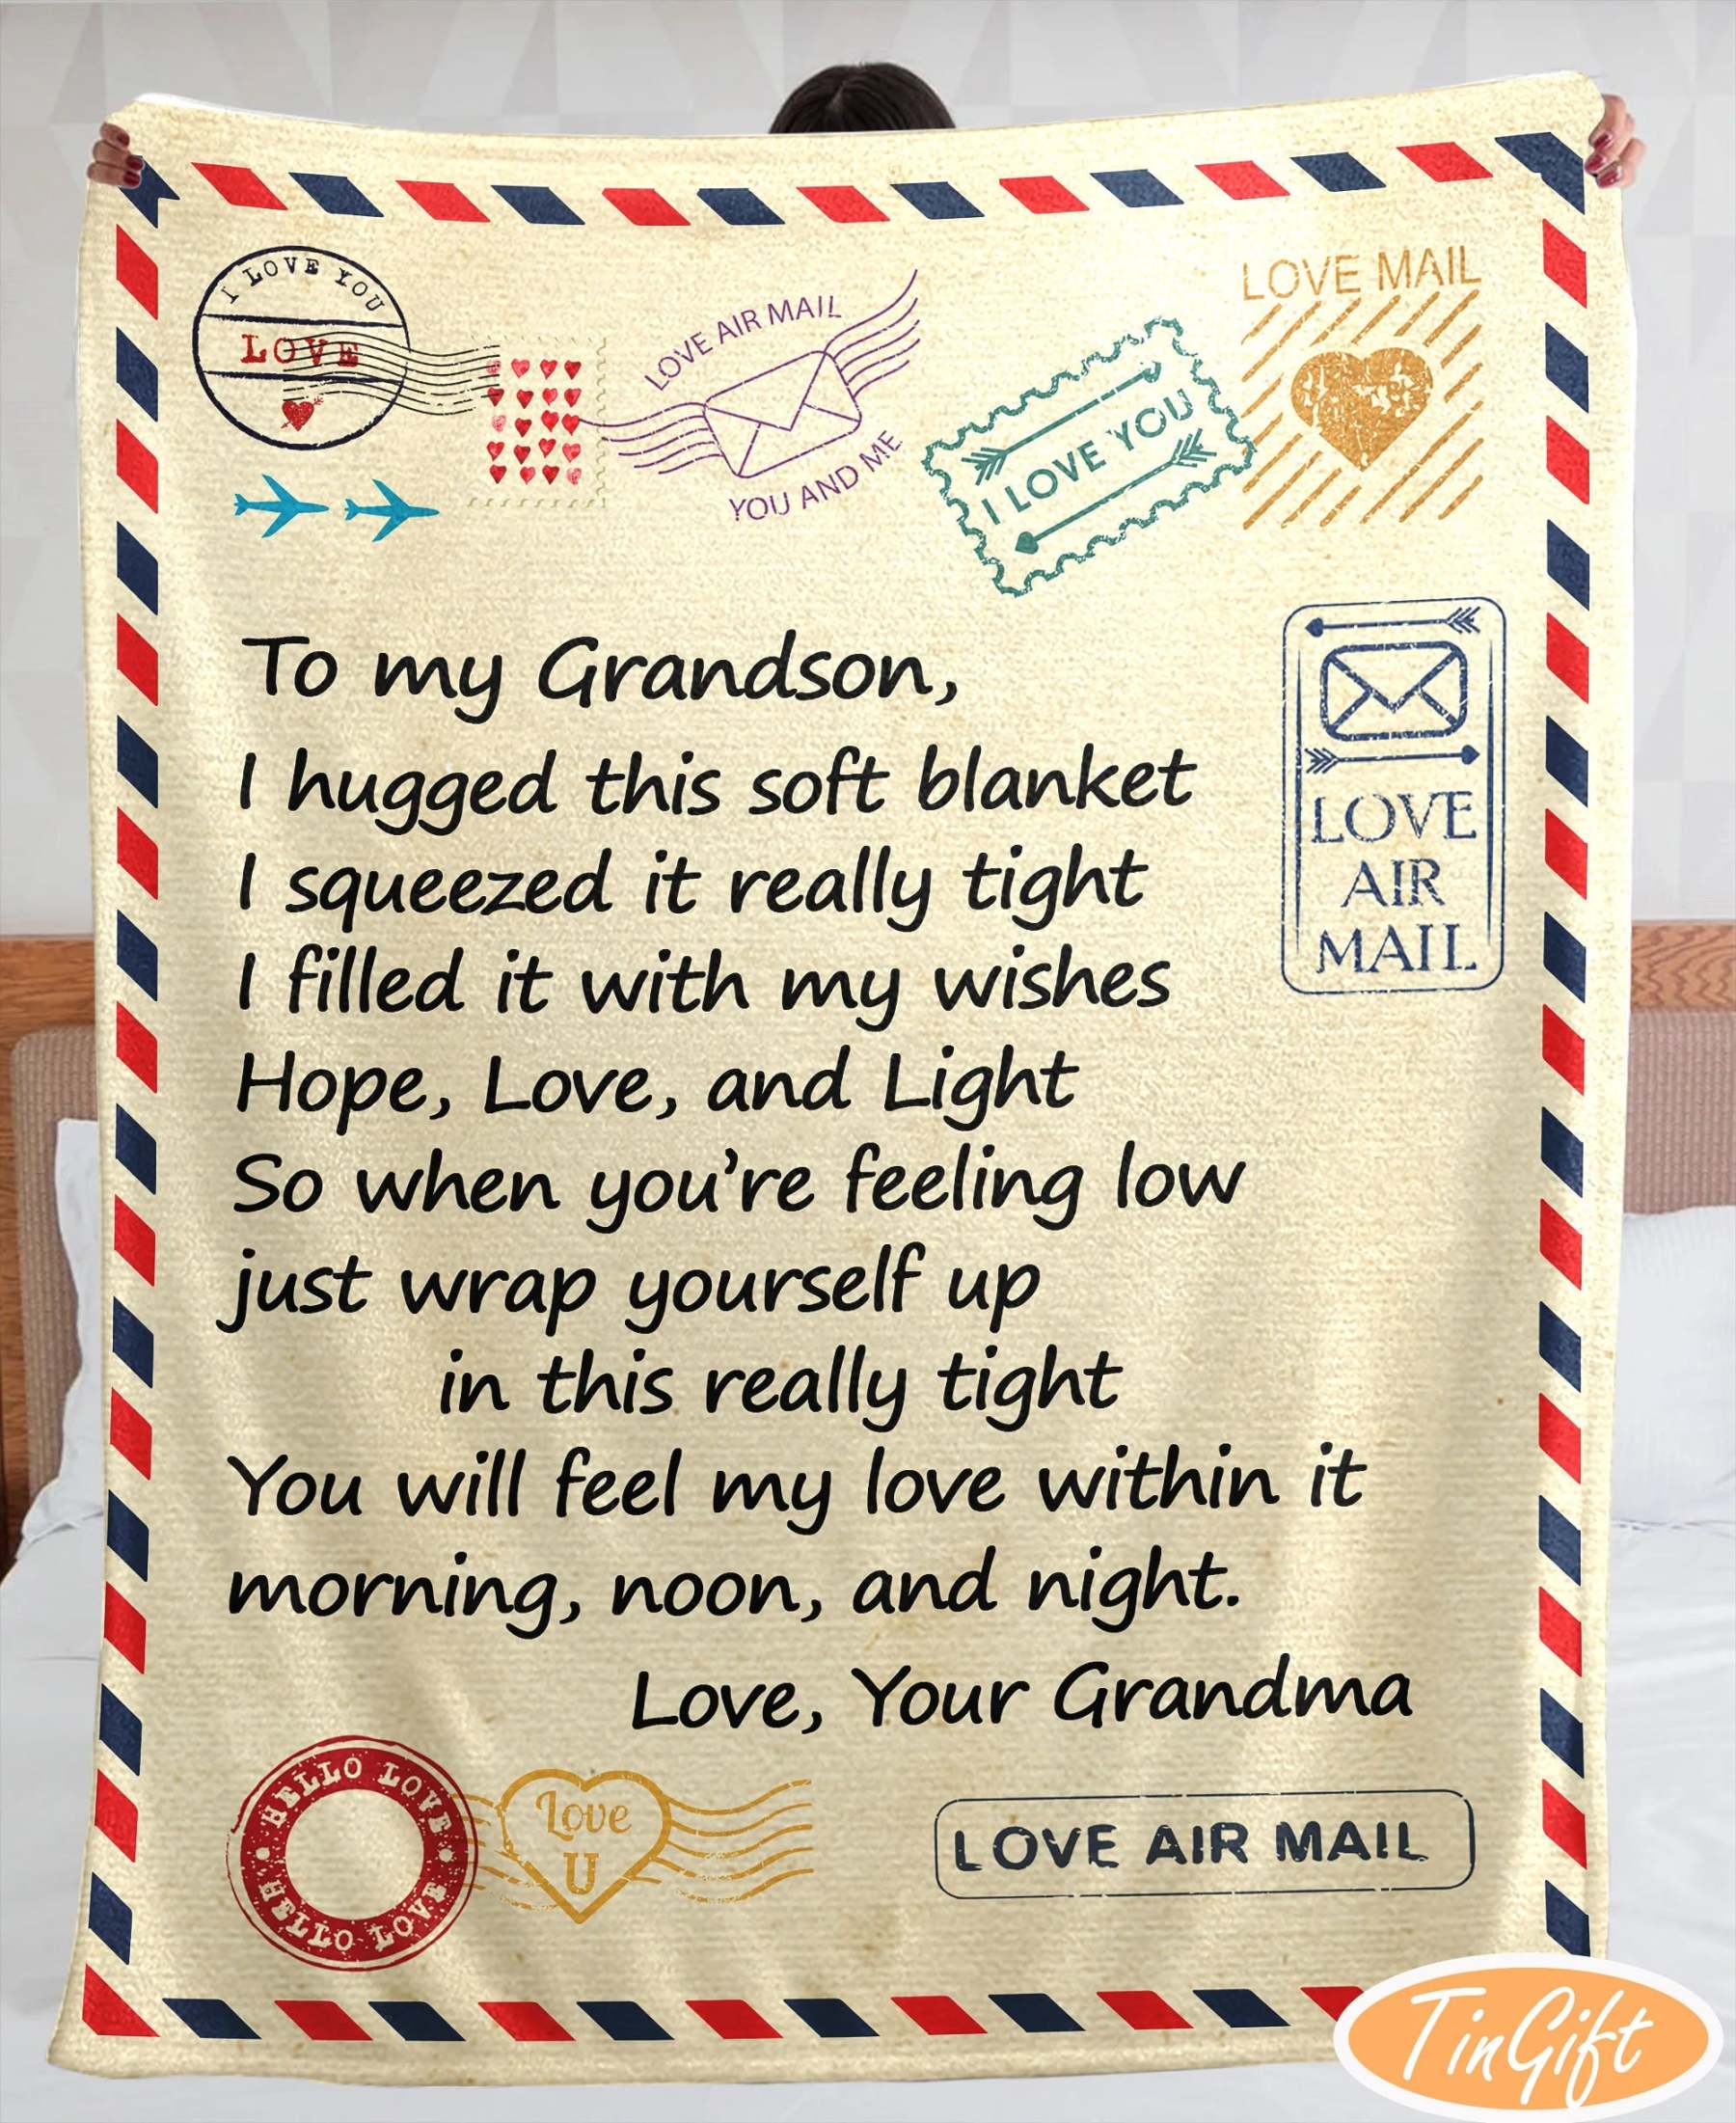 I LOVE YOU
LOVE
LOVE AIR MAIL
YOU AND ME
I LOVE YOU
LOVE MAIL
LOVE
AIR
MAIL
To my Grandson,
I hugged this soft blanket
I squeezed it really tight
I filled it with my wishes
Hope, Love, and Light
So when you're feeling low
just wrap yourself up
in this really tight
You will feel my love within it
morning, noon, and night.
Love, Your Grandma
HELLO LOVE
HELLO LOVE
Love
U
LOVE AIR MAIL
TinGift